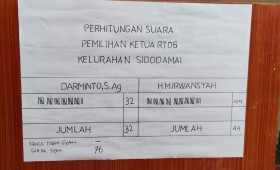 PERHITUNGAN SUARA
PEMILIHAN KETUA RT06
KELURAHAN SIDODAMAI
DARMINTO, S.Ag H.M.IRWANSYAH
32 44
JUMLAH 32 JUMLAH 44
SUARA TIDAK SYAH -
SUARA SYAH 76